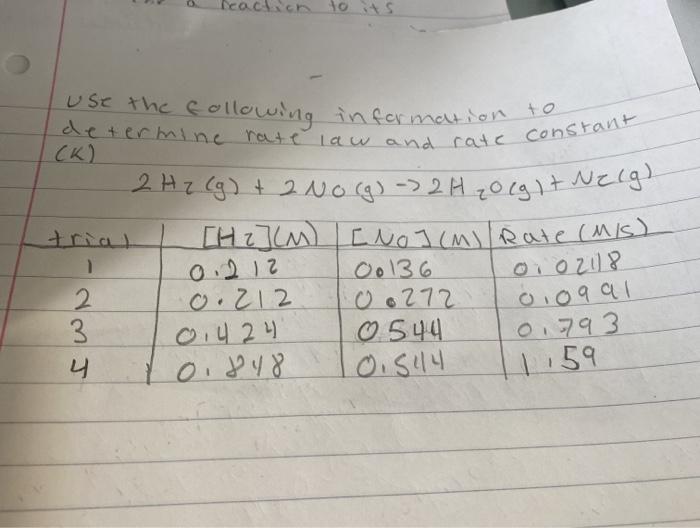 a reaction to its
use the following information to
determine rate law and rate constant
(K)
2H2(g) + 2NO(g) -> 2H2O(g) + N2(g)
trial [H2](M) [NO](M) Rate (M/s)
1 0.212 0.136 0.0248
2 0.212 0.272 0.0991
3 0.424 0.544 0.793
4 0.848 0.544 1.59